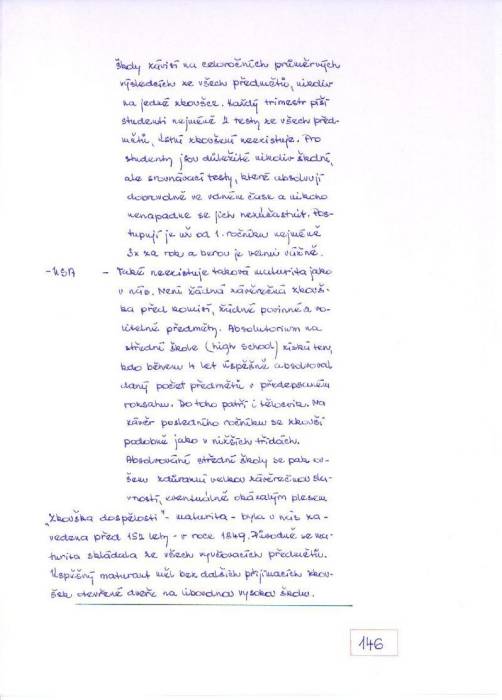 školy závisí na celoročních průměrných
výsledcích ze všech předmětů, nikoliv
na jedné zkoušce. Každý trimestr píší
studenti nejméně 2 testy ze všech před-
mětů, ústní zkoušení neexistuje. Pro
studenty jsou důležité nikoliv školní,
ale srovnávací testy, které absolvují
dobrovolně ve volném čase a nikoho
nenapadne se jich nezúčastnit. Pos-
tupují je už od 1. ročníku nejméně
3x za rok a berou je velmi vážně.
-USA - Také neexistuje taková maturita jako
u nás. Není žádná závěrečná zkouš-
ka před komisí, žádné povinné a vo-
litelné předměty. Absolutorium na
střední škole (high school) získá ten,
kdo během 4 let úspěšně absolvoval
daný počet předmětů v předepsaném
rozsahu. Do toho patří i tělocvik. Na
závěr posledního ročníku se zkouší
podobně jako v nižších třídách.
Absolvování střední školy se pak ov-
šem zdůrazní velkou závěrečnou sla-
vností, eventuálně okázalým plesem
"Zkouška dospělosti" - maturita - byla u nás za-
vedena před 152 lety - v roce 1849. Původně se ma-
turita skládala ze všech vyučovacích předmětů.
Úspěšný maturant měl bez dalších přijímacích zkou-
šek otevřené dveře na libovolnou vysokou školu.
146